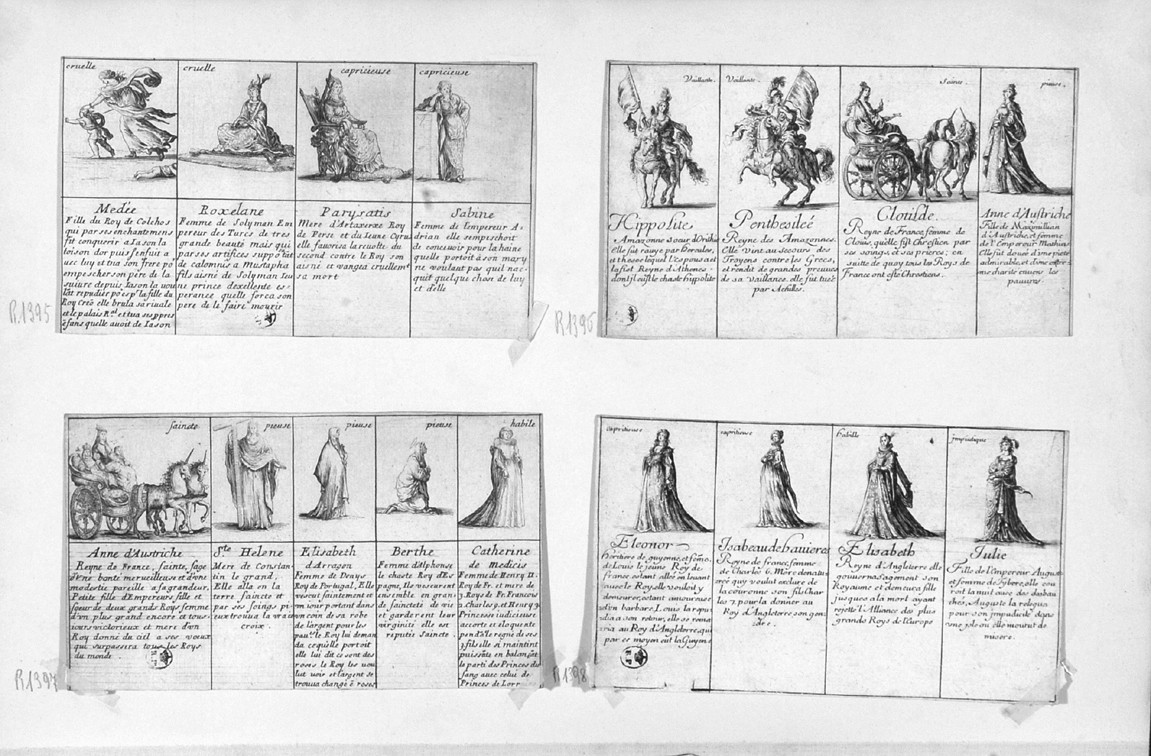 cruelle
Medée
Fille du Roy de Colchos
qui par ses enchantemens
fit conquerir a Iason la
toison dor puis senfuit a
uec luy et tua son frere po
empescher son pere de la
suiure depuis Iason la vou
lut repudier po esp la fille du
Roy Creō elle brula sa riuale
et le palais R.al et tua ses ppres
ēfans quelle auoit de Iason
cruelle
Roxelane
Femme de Solyman Em
pereur des Turcs de tres
grande beauté mais qui
par ses artifices suppo
de calomnies a Mustapha
fils aisné de Solyman Ieu
ne prince dexellente es-
perance quelle força son
pere de le faire mourir
capricieuse
Parysatis
Mere d'Artaxerxe Roy
de Perse et du Ieune Cyru
elle favorisa la reuolte du
second contre le Roy son
aisné et vangea cruellem.t
sa mort
capricieuse
Sabine
Femme de lempereur A-
drian elle sempeschoit
de conceuoir pour la haine
quelle portoit a son mary
ne voulant pas quel nac-
quit quelque chose de luy
et d'elle
R.1395
Vaillante.
Hippolite
Amazonne soeur d'Orithie
elle fut rauie par Hercules,
et thesee lequel l'espousa et
la fist Reyne d'Athenes
dont il eust le chaste hippolite
Vaillante.
Penthesileé
Reyne des Amazonnes.
Elle vint au secours des
Troyens contre les Grecs,
et rendit de grandes preuues
de sa vaillance elle fut tuée
par Achilles.
Sainte.
Clotilde.
Reyne de France, femme de
Clouis, quelle fist Chrestien par
ses soings, et ses prieres; en
suitte de quoy tous les Roys de
France ont esté Chrestiens.
pieuse.
Anne d'Austriche
Fille de Maximilian
d'Austriche, et femme
de l'Empereur Mathias
Elle fut douée d'une pieté
admirable, et d'une extré-
me charité enuers les
pauures
R.1396
saincte
Anne d'Austriche
Reyne de France, sainte, sage
d'vne bonté merveilleuse et d'vne
modestie pareille a sa grandeur.
Petite fille d'Empereurs fille et
soeur de deux grands Roys femme
d'vn plus grand encore et tous-
iours victorieux et mere d'vn
Roy donné du ciel a ses voeux
qui surpassera tous les Roys
du monde
pieuse
S.te Helene
Mere de Constan-
tin le grand,
Elle alla en la
terre saincte et
par ses soings pi-
eux trouua la vraie
croix.
pieuse
Elisabeth
d'Arragon
Femme de Denys
Roy de Portugal, Elle
vescut saintement et
vn iour portant dans
vn coin de sa robe
de largent pour les
pau.res le Roy lui deman
da ce quelle portoit
elle lui dit ce sont des
roses le Roy les vou
lut voir et largent se
trouua changé ē roses
pieuse
Berthe
Femme d'Alphonse
le chaste Roy d'Es
pagne, ils vescurent
ensemble en gran
de saincteté de vie
et garderent leur
virginité elle est
reputeé Saincte.
habile
Catherine
de medicis
Femme de Henry II.
Roy de Fr. et mere de
3 Roys de Fr. François
2 Charles 9. et Henry 3
Princesse iudicieuse
accorte et eloquente
pendāt le regne de ses
3 fils elle si maintint
puissāte en balançāt
le parti des Princes du
sang auec celui de
Princes de Lorr
R.1397
capritieuse
Eleonor
heritiere de guyenne, et femme
de Louis le jeune Roy de
france estant allée en leuant
auec le Roy elle vouloit y
demeurer, estant amoureuse
d'vn barbare, Louis la repu
dia a son retour, elle se rema
ria au Roy d'Angleterre, qui
par ce moyen eut la Guyenne
capritieuse
Isabeau de bauiere
Reyne de france, femme
de Charle 6. Mere denatu
reé qui voulut exclure de
la couronne son fils Char
les 7. pour la donner au
Roy d'Angleterre son gen
dre.
habille
Elisabeth
Reyne d'Angleterre elle
gouuerna sagement son
Royaume et demeura fille
jusques a la mort ayant
rejetté l'Alliance des plus
grands Roys de l'europe
impudique
Julie
Fille de l'Empereur Auguste
et femme de Tybere, elle sou
roit la nuit auec des desbau
chés, Auguste la relegua
pour son impudicité dans
vne jsle ou elle mourut de
misere.
R.1398